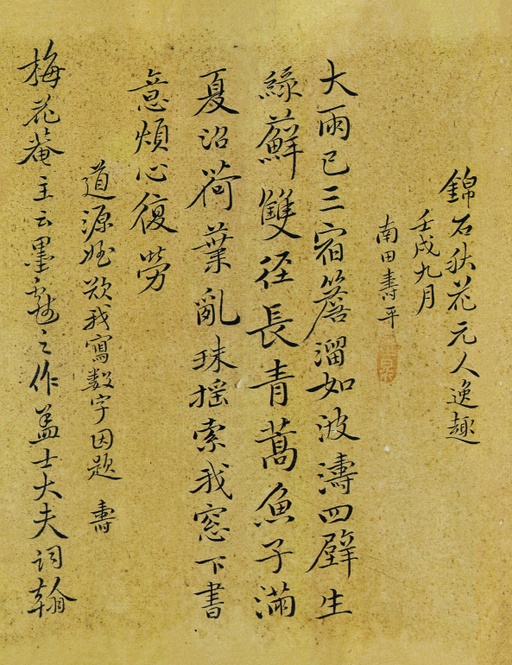 錦石秋花元人逸趣
壬戌九月
南田壽平
大雨已三宿簷溜如波濤四壁生
綠蘚雙径長青蒿魚子滿
夏沼荷葉亂珠搖索我窓下書
意煩心復勞
道源姪欲我寫數字因題 壽
梅花菴主云墨戲之作盖士大夫詞翰